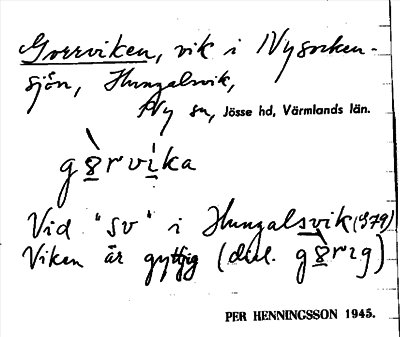 Gorrviken, vik i Ny socken-
sjön, Hungalsvik,
Ny sn, Jösse hd, Värmlands län.
g8rvika
Vid "sv" i Hungalsvik (S79)
Viken är gyttjig (dial. g8rıg)
PER HENNINGSSON 1945.